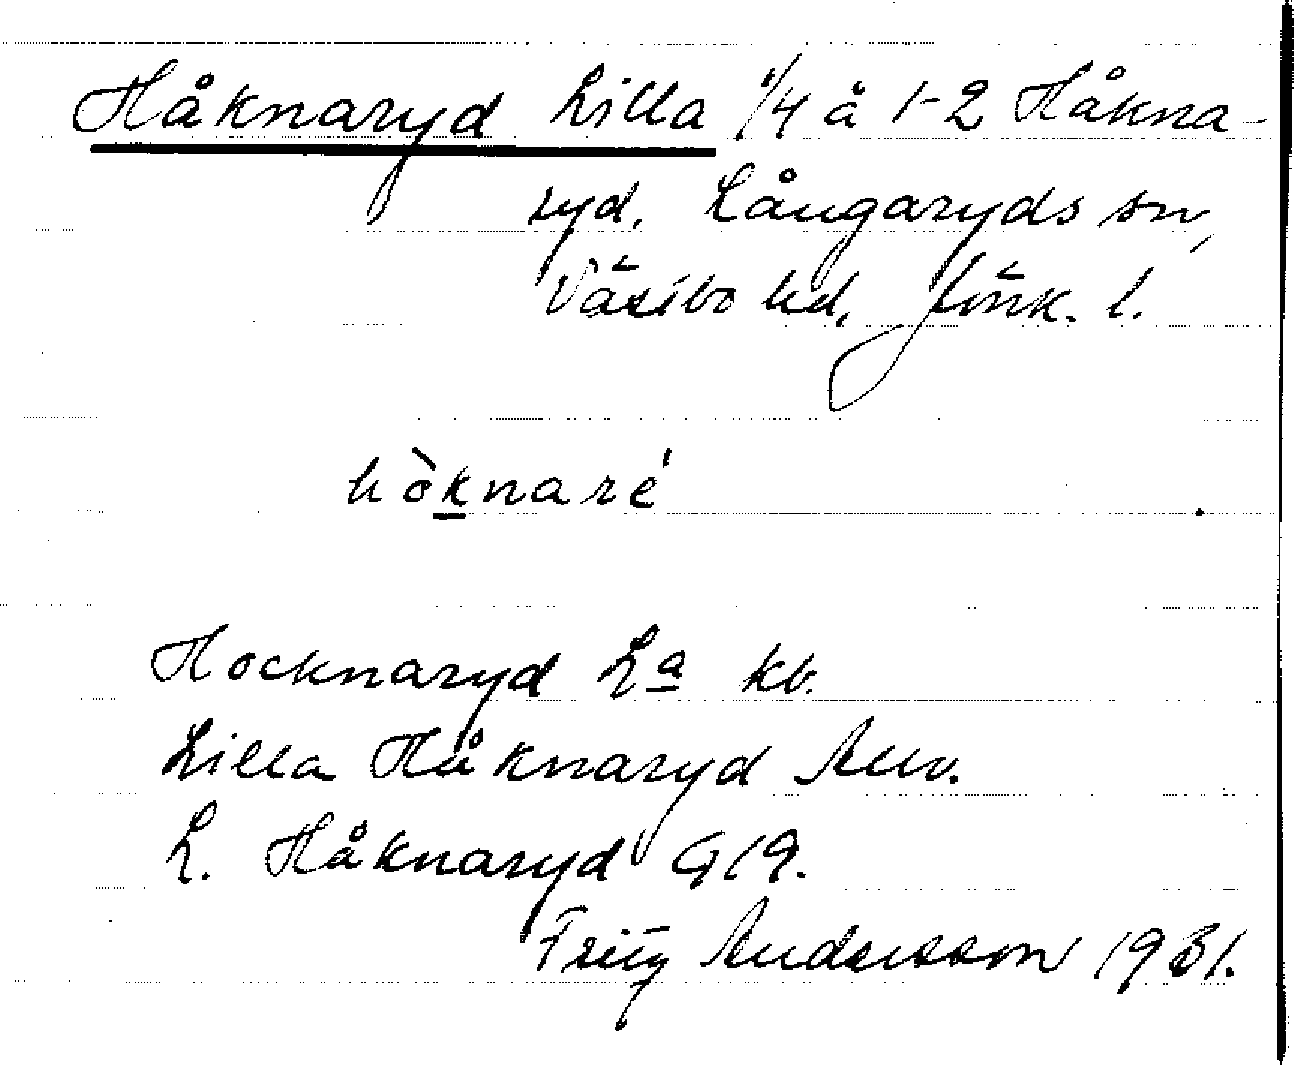 Håknaryd Lilla 1/4 å 1-2 Håkna-
ryd, Långaryds sn,
Västbo hd, Jönk. l.
hòknaré
Hocknaryd La kb.
Lilla Håknaryd Allv.
L. Håknaryd G19.
Fritz Andersson 1931.